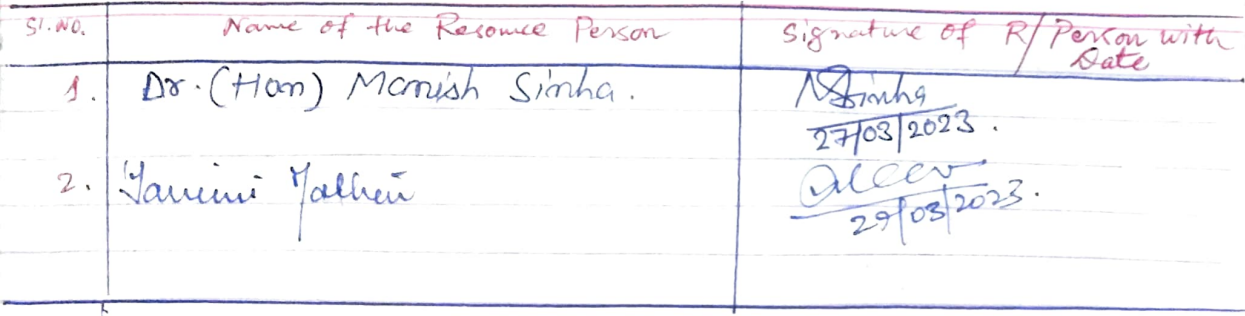 Sl. NO. Name of the Resource Person Signature of R/Person with Date
1. Dr. (Hon) Manish Sinha. MSinha
27/03/2023.
2.
29/03/2023.